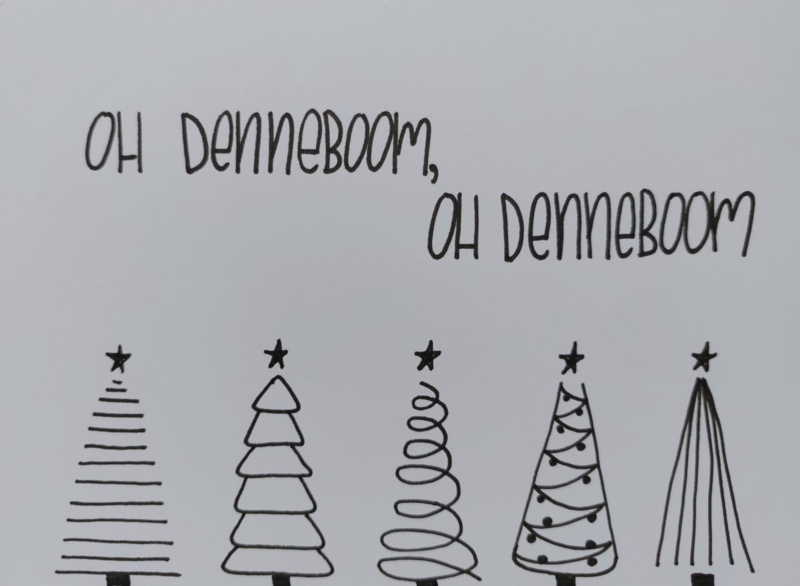 OH DenneBOOM,
OH DenneBOOM